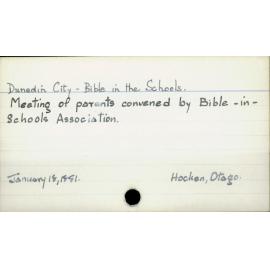 Dunedin City - Bible in the Schools.
Meeting of parents convened by Bible - in -
Schools Association.
January 18, 1881. Hocken, Otago.